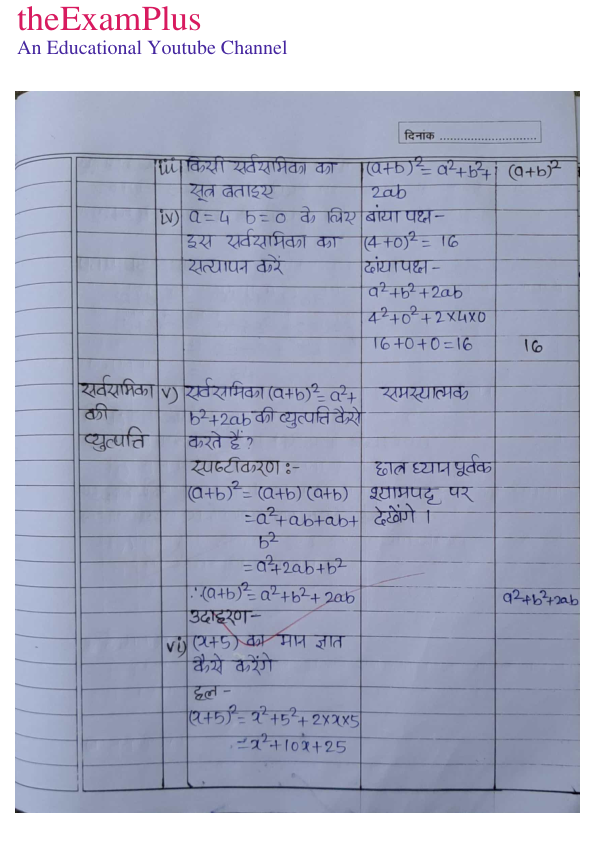 theExamPlus
An Educational Youtube Channel
दिनांक
iii) किसी सर्वसमिका का
सूत्र बताइए
(a+b)²= a²+b²+
2ab
(a+b)²
iv) a=4 b=0 के लिए
इस सर्वसमिका का
सत्यापन करें
बांया पक्ष-
(4+0)²= 16
दांया पक्ष-
a²+b²+2ab
4²+0²+2×4×0
16+0+0=16
16
सर्वसमिका
की
व्युत्पत्ति
v) सर्वसमिका (a+b)²= a²+
b²+2ab की व्युत्पत्ति कैसे
करते हैं ?
समस्यात्मक
स्पष्टीकरण :-
(a+b)²= (a+b) (a+b)
=a²+ab+ab+
b²
=a²+2ab+b²
∴(a+b)²= a²+b²+ 2ab
छात्र ध्यान पूर्वक
श्यामपट्ट पर
देखेंगे ।
a²+b²+2ab
उदाहरण-
vi) (x+5) का मान ज्ञात
कैसे करेंगे
हल -
(x+5)²= x²+5²+2×x×5
=x²+10x+25